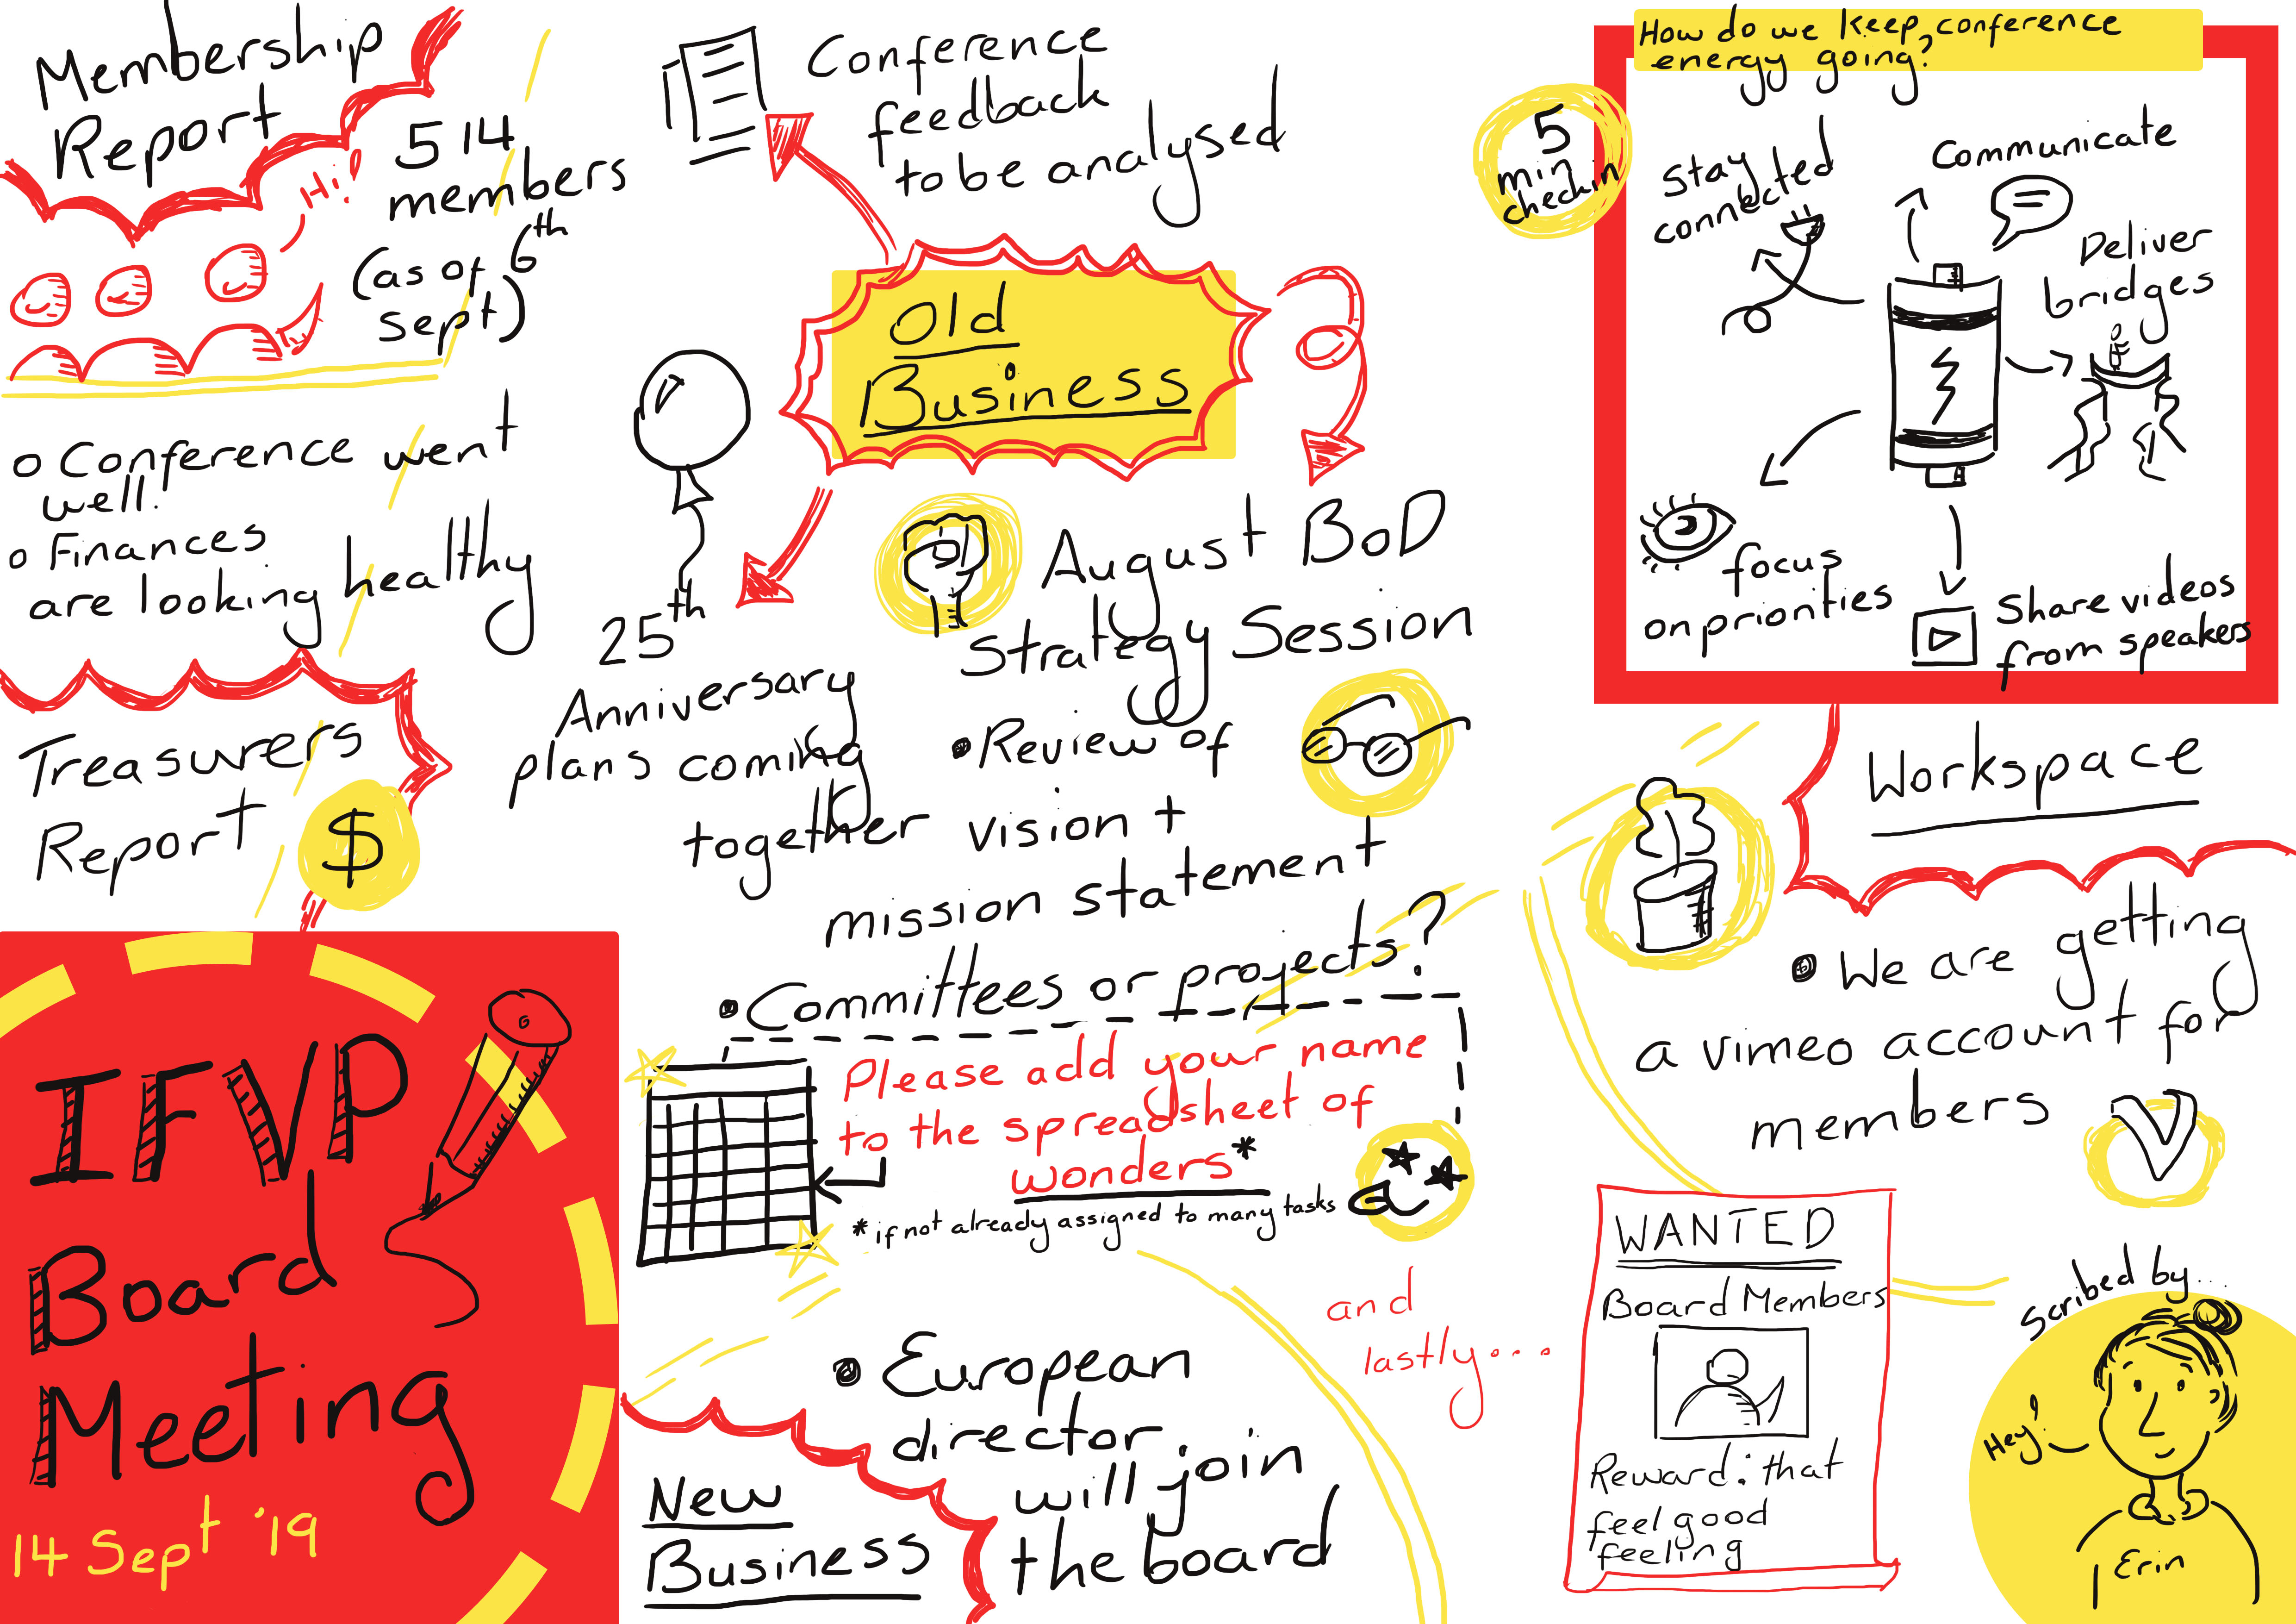 Membership
Report
Hi!
514
members
(as of 6th
Sept)
o Conference went
well!
o Finances
are looking healthy
Treasurers
Report
$
IFVP
Board
Meeting
14 Sept '19
Conference
feedback
to be analysed
Old
Business
25th
Anniversary
plans coming
together
August BoD
Strategy Session
• Review of
vision +
mission statement
• Committees or projects?
Please add your name
to the spreadsheet of
wonders*
*if not already assigned to many tasks
New
Business
• European
director
will join
the board
5
min
checkin
How do we keep conference
energy going?
Stay
connected
Communicate
Deliver
bridges
focus
on priorities
Share videos
from speakers
Workspace
• We are getting
a vimeo account for
members
V
and
lastly...
WANTED
Board Members
Reward: that
feel good
feeling
Scribed by...
Hey!
Erin